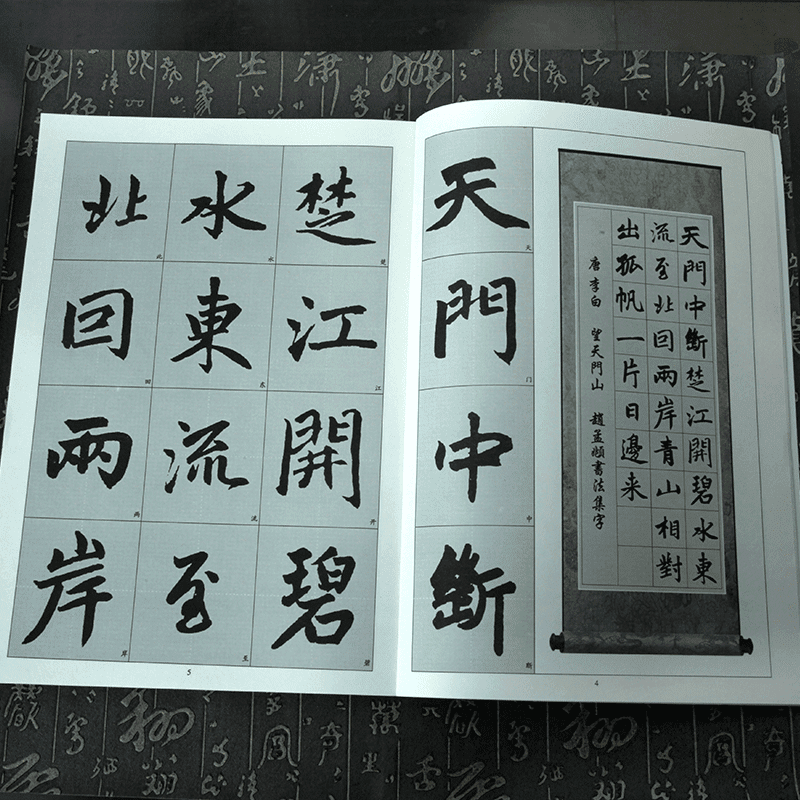 天門中斷楚江開碧水東
流至北回兩岸青山相對
出孤帆一片日邊来
唐李白 望天門山 趙孟頫書法集字
4
天門中斷
天 门 中 断
楚江開碧
楚 江 开 碧
水東流至
水 东 流 至
北回兩岸
北 回 两 岸
5